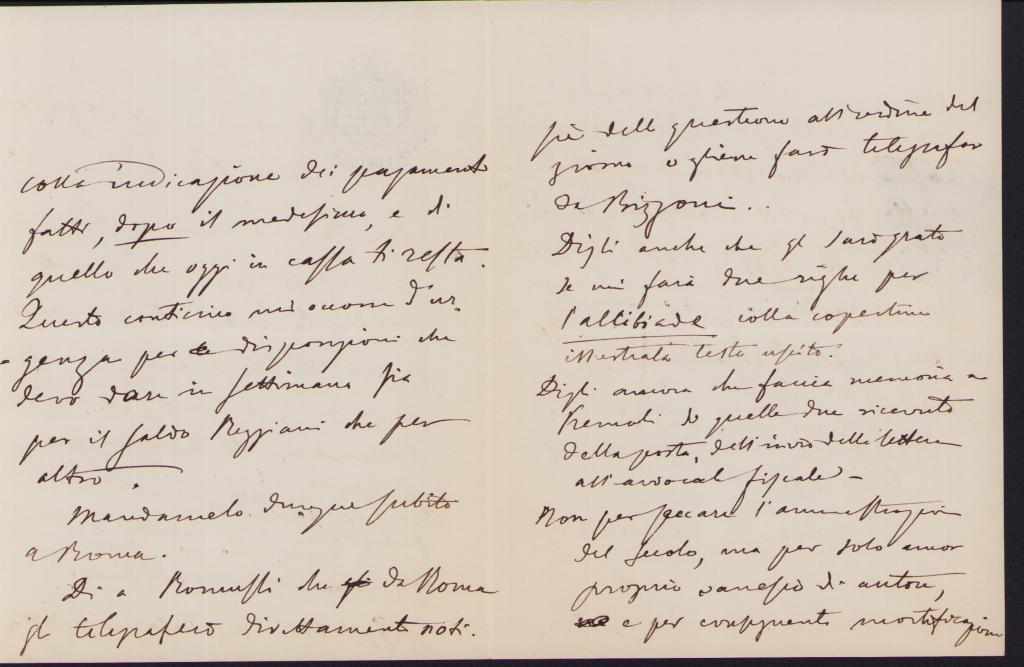 colla indicazione dei pagamenti
fatti, dopo il medesimo, e di
quello che oggi in cassa ti resta.
Questo conticino mi occorre d'ur-
genza per disposizioni che
devo dare in settimana sia
per il saldo Reggiani che per
altro.
Mandamelo dunque subito
a Roma.
Di a Romussi che da Roma
gli telegraferò direttamente noti-
zie delle questione all'ordine del
giorno o gliene farò telegrafar
da Bizzoni..
Digli anche che gli sarò grato
se mi farà due righe per
l'Alcibiade colla copertina
illustrata testè uscito.
Digli ancora che faccia memoria a
di quelle due ricevute
della posta, dell'invio delle lettere
all'avvocato fiscale -
Non per seccare l'amministrazione
del Secolo, ma per solo amor
proprio di autore,
e per conseguente mortificazione